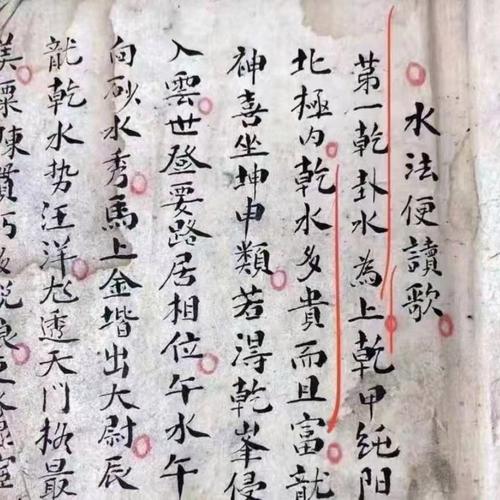 水法便讀歌
第一乾卦水為上乾甲純陽
北極内乾水多貴而且富龍
神喜坐坤申類若得乾峯侵
入雲世登要路居相位午水午
向砂水秀馬上金堦出大尉辰
龍乾水势汪洋尨透天门格最
美粟陳貫朽